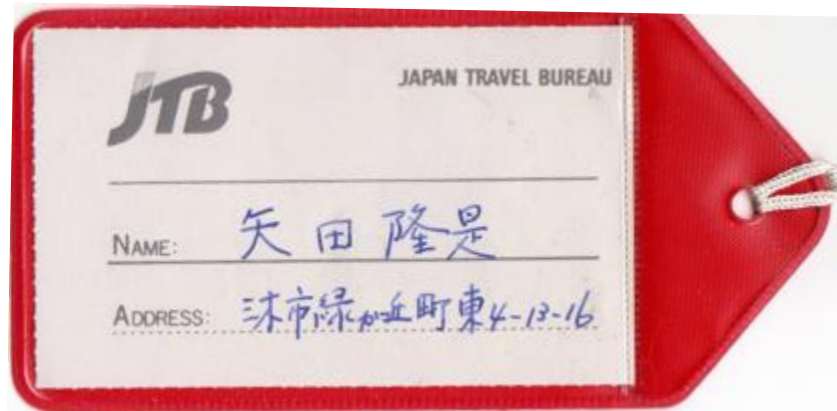 JTB
JAPAN TRAVEL BUREAU
NAME: 矢田隆是
ADDRESS: 三木市緑が丘町東4-13-16